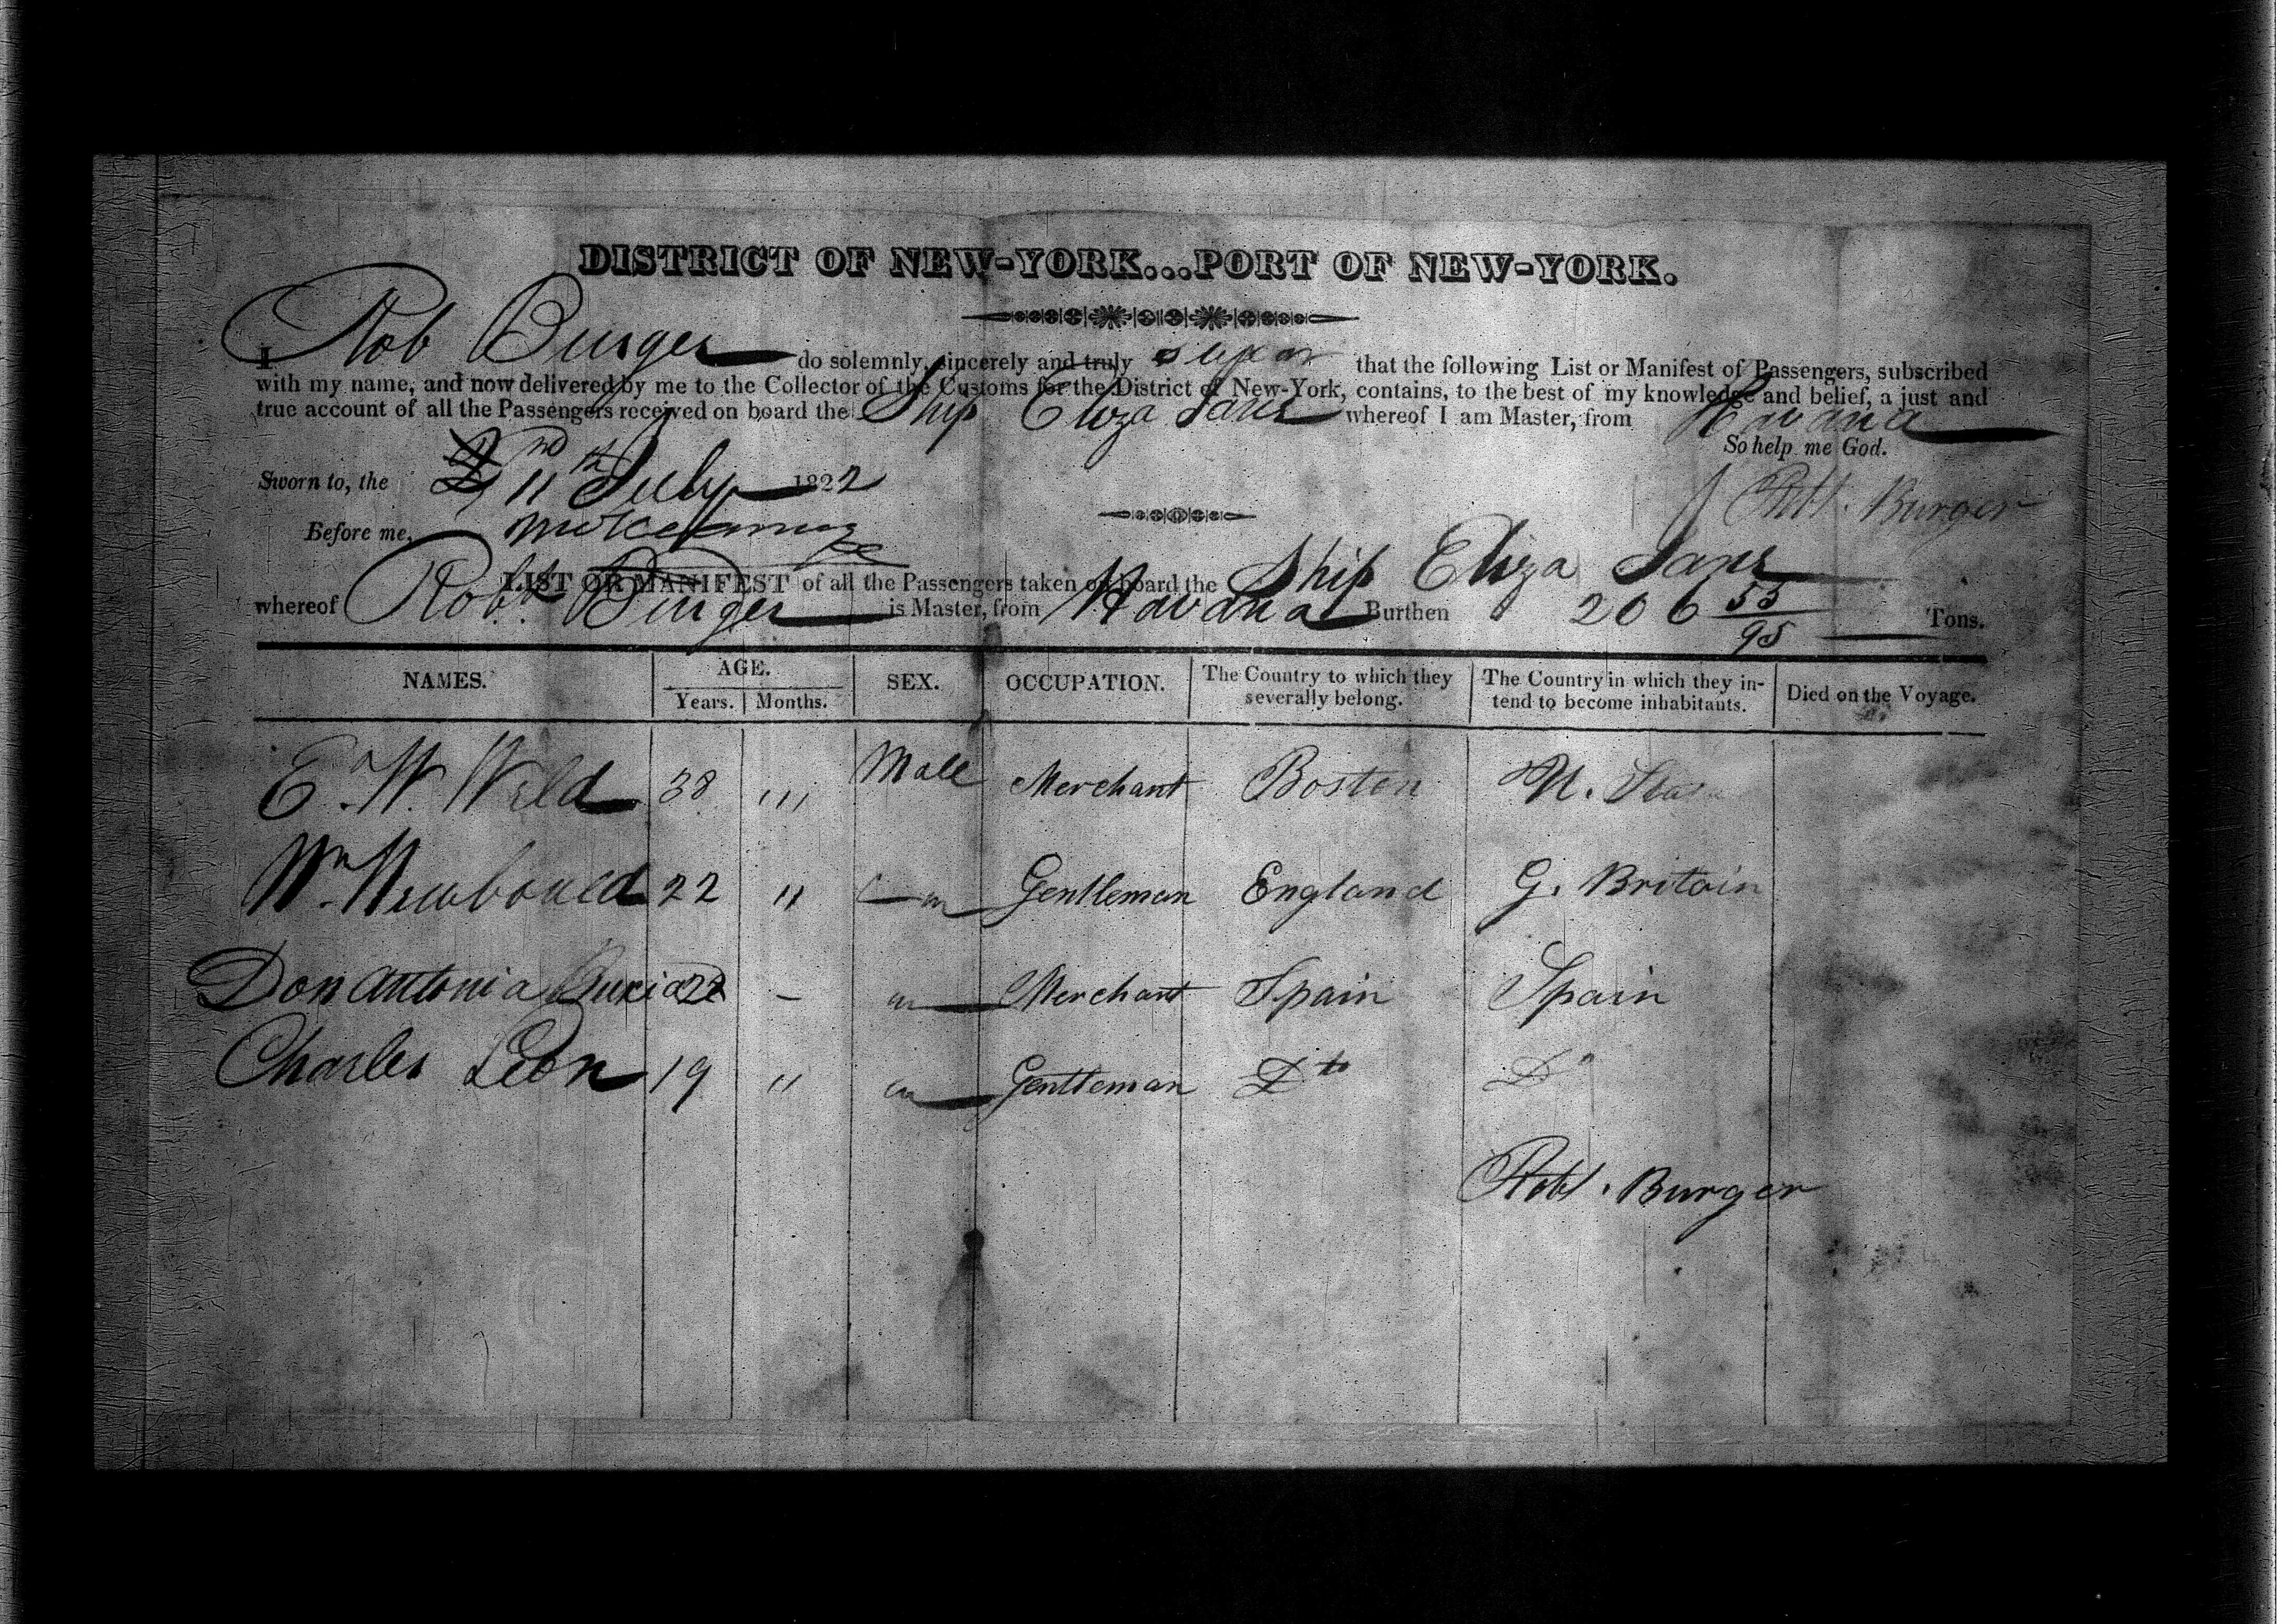 DISTRICT OF NEW-YORK...PORT OF NEW-YORK.
I Rob Burger do solemnly, sincerely and truly swear that the following List or Manifest of Passengers, subscribed
with my name, and now delivered by me to the Collector of the Customs for the District of New-York, contains, to the best of my knowledge and belief, a just and
true account of all the Passengers received on board the Ship Eliza Jane whereof I am Master, from Havana
So help me God.
Sworn to, the 11th July 1822
Robt. Burger
Before me,
LIST OR MANIFEST of all the Passengers taken on board the Ship Eliza Jane
whereof Robt. Burger is Master, from Havana Burthen 206 55/95 Tons.
NAMES. AGE. SEX. OCCUPATION. The Country to which they severally belong. The Country in which they intend to become inhabitants. Died on the Voyage.
Years. Months.
E. W. Weld 38 ,,, Male Merchant Boston U. States
Wm. Newbould 22 ,, Gentleman England G. Britain
Don Antonia 22 - Merchant Spain Spain
Charles Leon 19 ,, Gentleman Dto Do
Robt. Burger